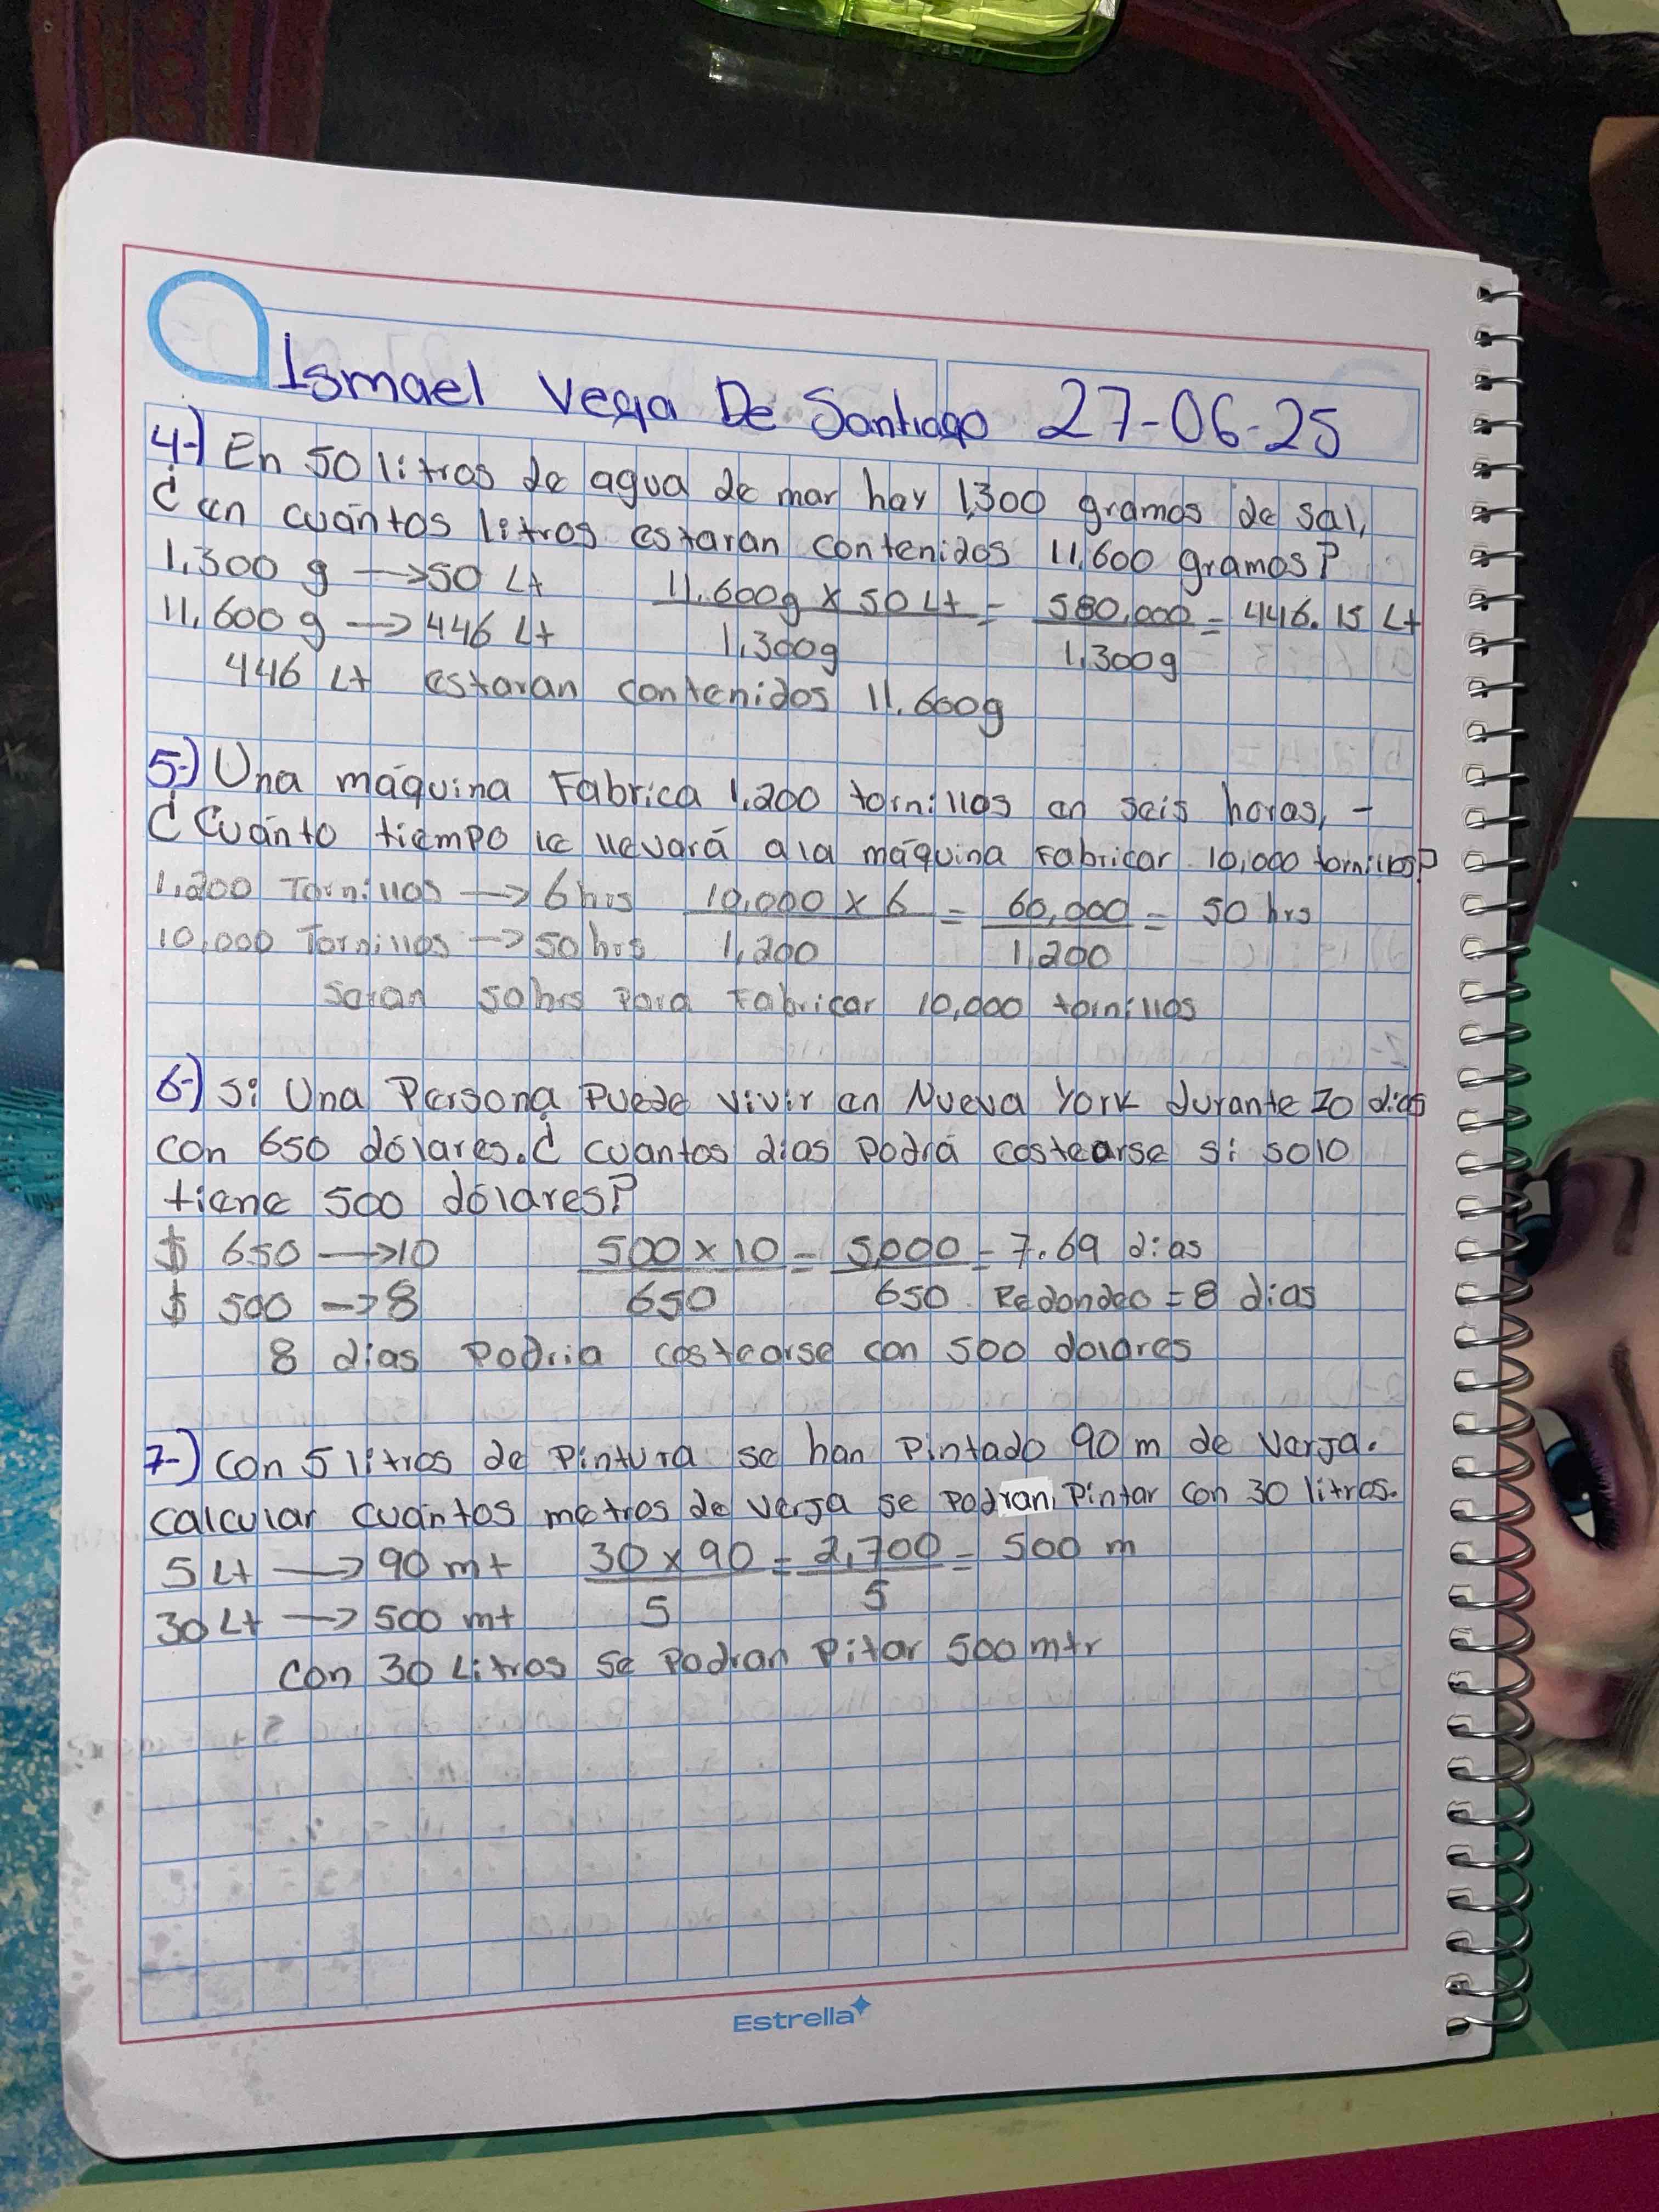 Ismael Vega De Santiago 27-06-25
4-) En 50 litros de agua de mar hay 1,300 gramos de sal,
¿ en cuántos litros estaran contenidos 11,600 gramos?
1,300 g → 50 Lt 11,600g x 50 Lt = 580,000 = 446.15 Lt
11,600 g → 446 Lt 1,300g 1,300g
446 Lt estaran contenidos 11,600g
5-) Una máquina Fabrica 1,200 tornillos en seis horas, -
¿ Cuánto tiempo le llevará ala máquina Fabricar 10,000 tornillos?
1,200 Tornillos → 6 hrs 10,000 x 6 = 60,000 = 50 hrs
10,000 Tornillos → 50 hrs 1,200 1,200
Seran 50hrs Para Fabricar 10,000 tornillos
6-) Si Una Persona Puede vivir en Nueva York durante 10 dias
con 650 dólares. ¿ cuantos dias Podrá costearse si solo
tiene 500 dólares?
$ 650 → 10 500 x 10 = 5,000 = 7.69 dias
$ 500 → 8 650 650 Redondeo = 8 dias
8 dias Podria costearse con 500 dolares
7-) Con 5 litros de Pintura se han Pintado 90 m de Verja.
calcular cuántos metros de verja se Podran Pintar con 30 litros.
5 Lt → 90 mt 30 x 90 = 2,700 = 500 m
30 Lt → 500 mt 5 5
Con 30 Litros se Podran Pitar 500 mtr
Estrella